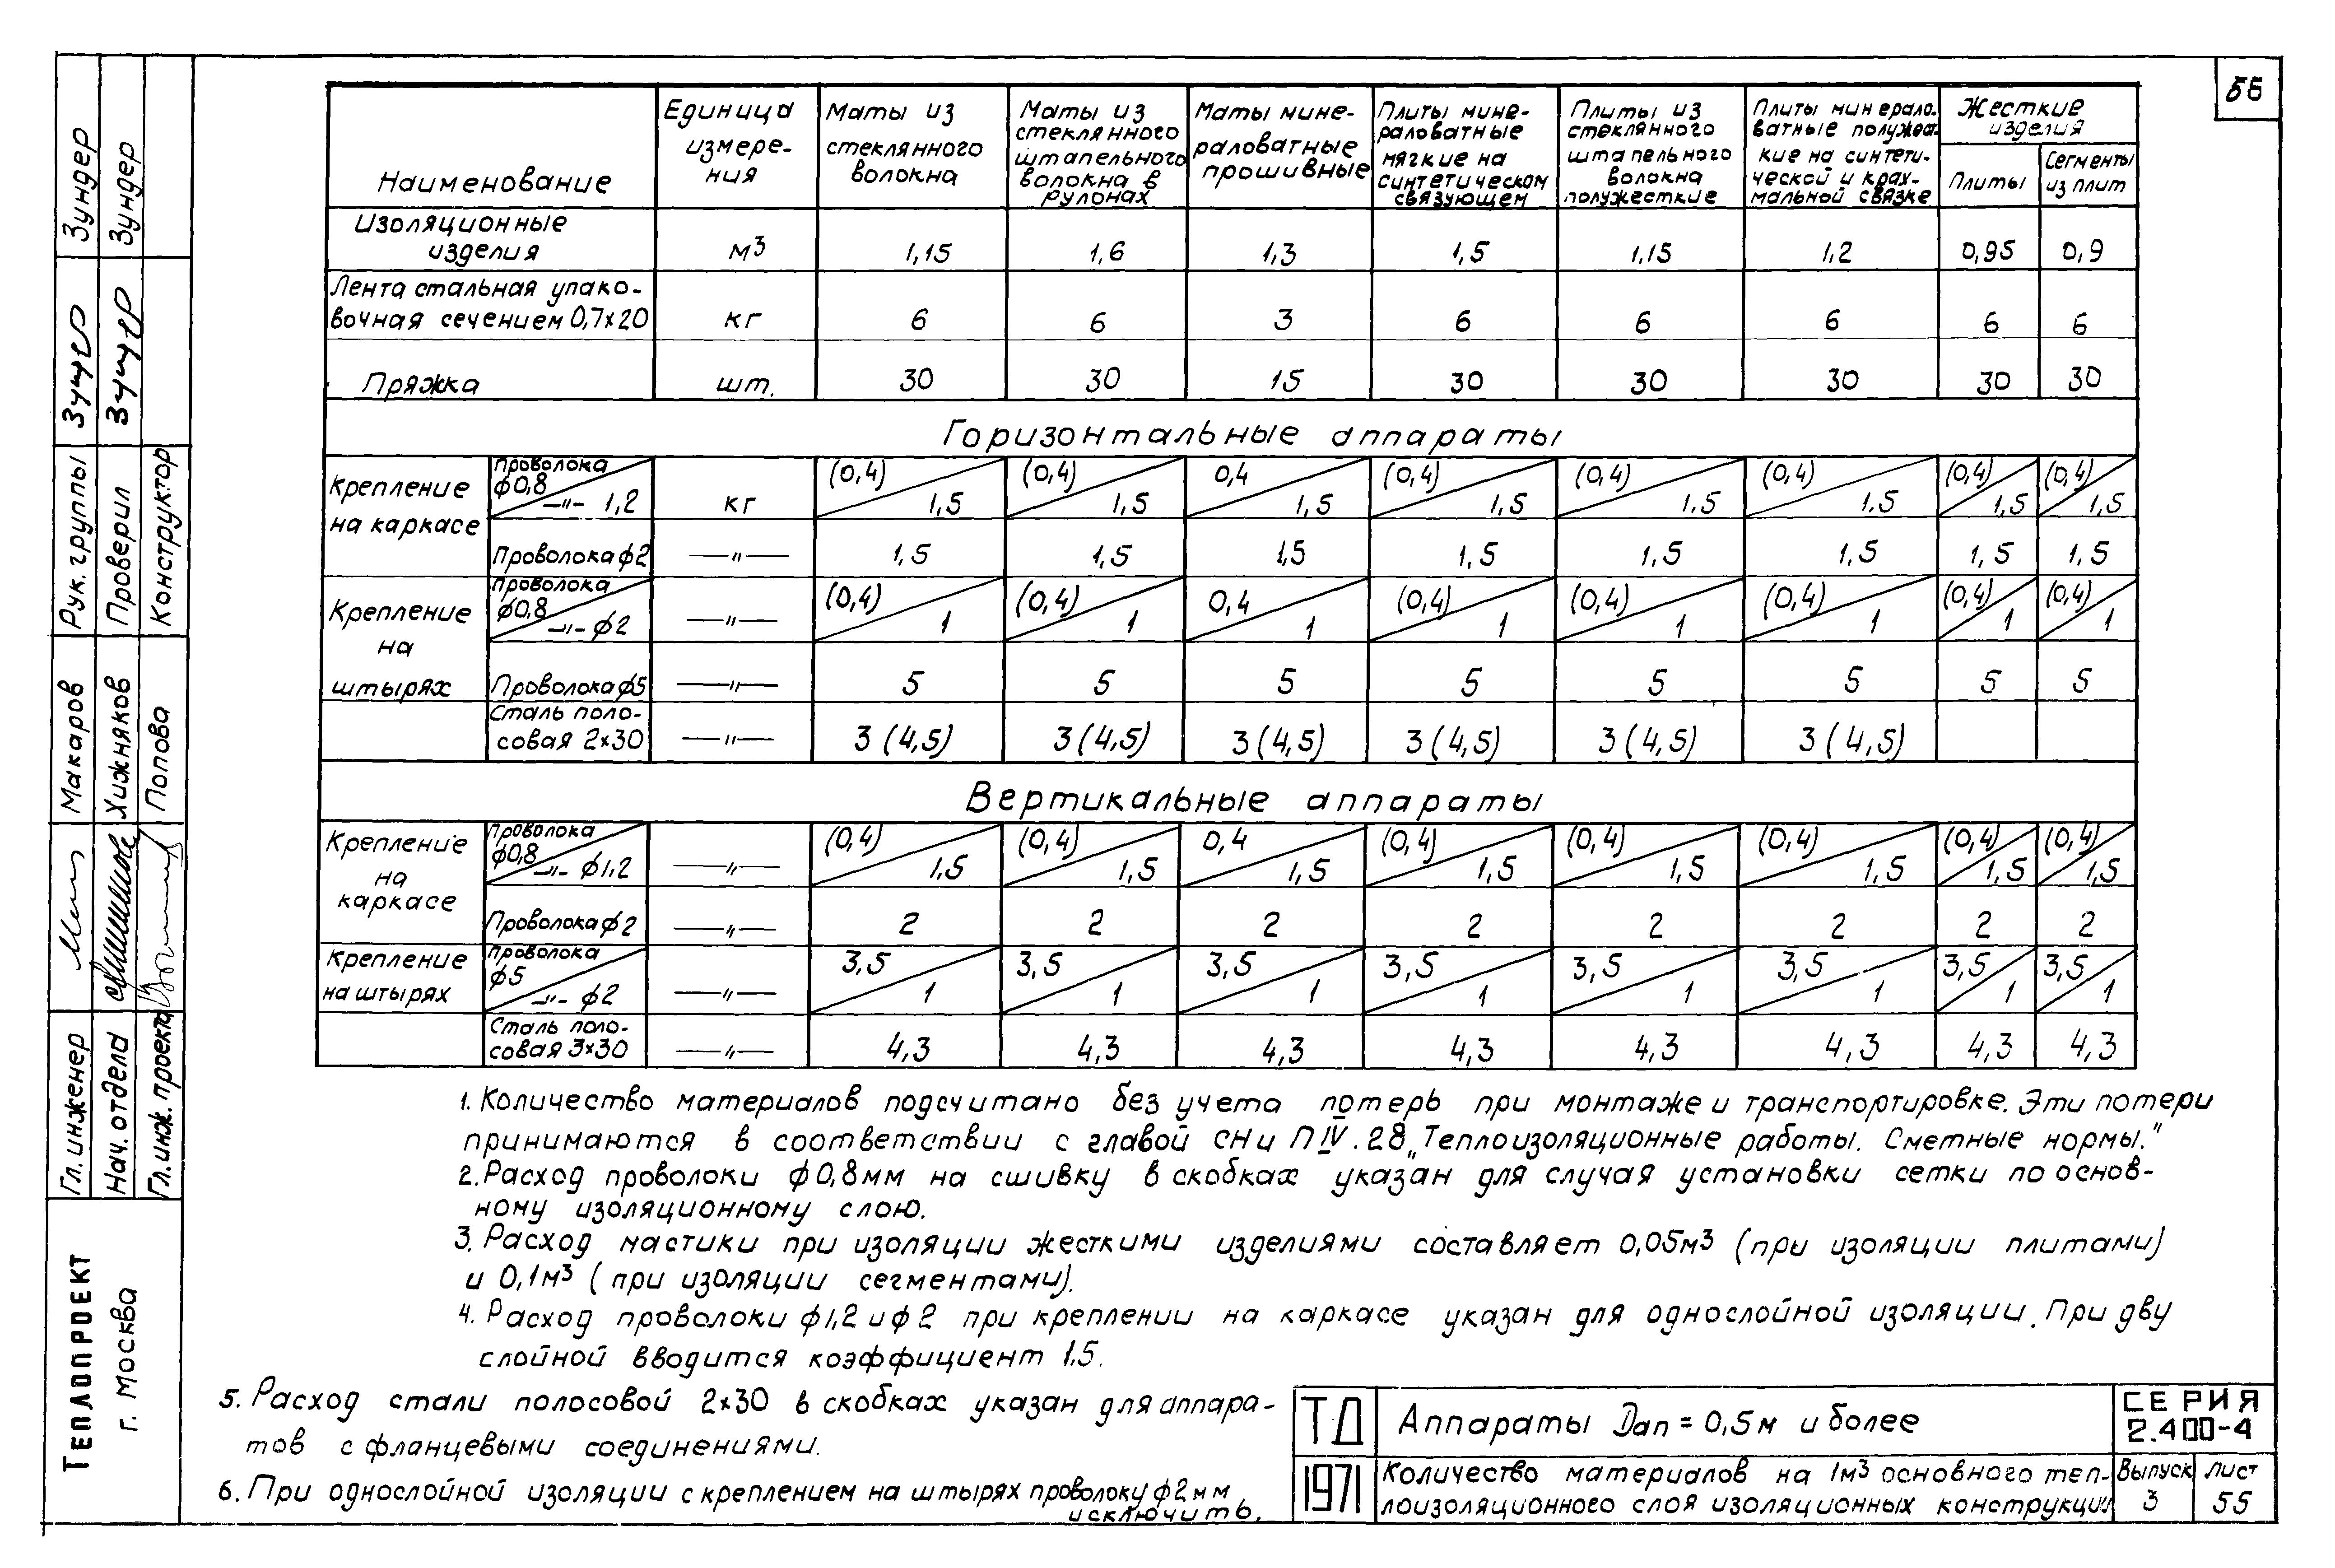 56
Наименование
Единица измере-ния
Маты из стеклянного волокна
Маты из стеклянного штапельного волокна в рулонах
Маты мине-раловатные прошивные
Плиты мине-раловатные мягкие на синтетическом связующем
Плиты из стеклянного штапельного волокна полужесткие
Плиты минерало-ватные полужест-кие на синтети-ческой и крах-мальной связке
Жесткие изделия
Плиты
Сегменты из плит
Изоляционные изделия м³ 1,15 1,6 1,3 1,5 1,15 1,2 0,95 0,9
Лента стальная упако-
вочная сечением 0,7×20 кг 6 6 3 6 6 6 6 6
Пряжка шт. 30 30 15 30 30 30 30 30
Горизонтальные аппараты
Крепление на каркасе
Проволока ф0,8 (0,4) (0,4) 0,4 (0,4) (0,4) (0,4) (0,4) (0,4)
—"— 1,2 кг 1,5 1,5 1,5 1,5 1,5 1,5 1,5 1,5
Проволока ф2 —"— 1,5 1,5 1,5 1,5 1,5 1,5 1,5 1,5
Крепление на штырях
Проволока ф0,8 (0,4) (0,4) 0,4 (0,4) (0,4) (0,4) (0,4) (0,4)
—"— ф2 —"— 1 1 1 1 1 1 1 1
Проволока ф5 —"— 5 5 5 5 5 5 5 5
Сталь поло-
совая 2×30 —"— 3(4,5) 3(4,5) 3(4,5) 3(4,5) 3(4,5) 3(4,5)
Вертикальные аппараты
Крепление на каркасе
Проволока ф0,8 (0,4) (0,4) 0,4 (0,4) (0,4) (0,4) (0,4) (0,4)
—"— ф1,2 —"— 1,5 1,5 1,5 1,5 1,5 1,5 1,5 1,5
Проволока ф2 —"— 2 2 2 2 2 2 2 2
Крепление на штырях
Проволока ф5 3,5 3,5 3,5 3,5 3,5 3,5 3,5 3,5
—"— ф2 —"— 1 1 1 1 1 1 1 1
Сталь поло-
совая 3×30 —"— 4,3 4,3 4,3 4,3 4,3 4,3 4,3 4,3
1. Количество материалов подсчитано без учета потерь при монтаже и транспортировке. Эти потери
принимаются в соответствии с главой СНиП IV.28 „Теплоизоляционные работы. Сметные нормы."
2. Расход проволоки ф0,8мм на сшивку в скобках указан для случая установки сетки по основ-
ному изоляционному слою.
3. Расход мастики при изоляции жесткими изделиями составляет 0,05м³ (при изоляции плитами)
и 0,1м³ (при изоляции сегментами).
4. Расход проволоки ф1,2 и ф2 при креплении на каркасе указан для однослойной изоляции. При дву
слойной вводится коэффициент 1,5.
5. Расход стали полосовой 2×30 в скобках указан для аппара-
тов с фланцевыми соединениями.
6. При однослойной изоляции с креплением на штырях проволоку ф2мм
исключить.
ТД
1971
Аппараты Dап = 0,5м и более
Количество материалов на 1м³ основного теп-
лоизоляционного слоя изоляционных конструкции
СЕРИЯ
2.400-4
Выпуск
3
Лист
55
ТЕПЛОПРОЕКТ
г. Москва
Гл. инженер Макаров Рук. группы Зундер
Нач. отдела Хижняков Проверил Зундер
Гл. инж. проекта Попова Конструктор